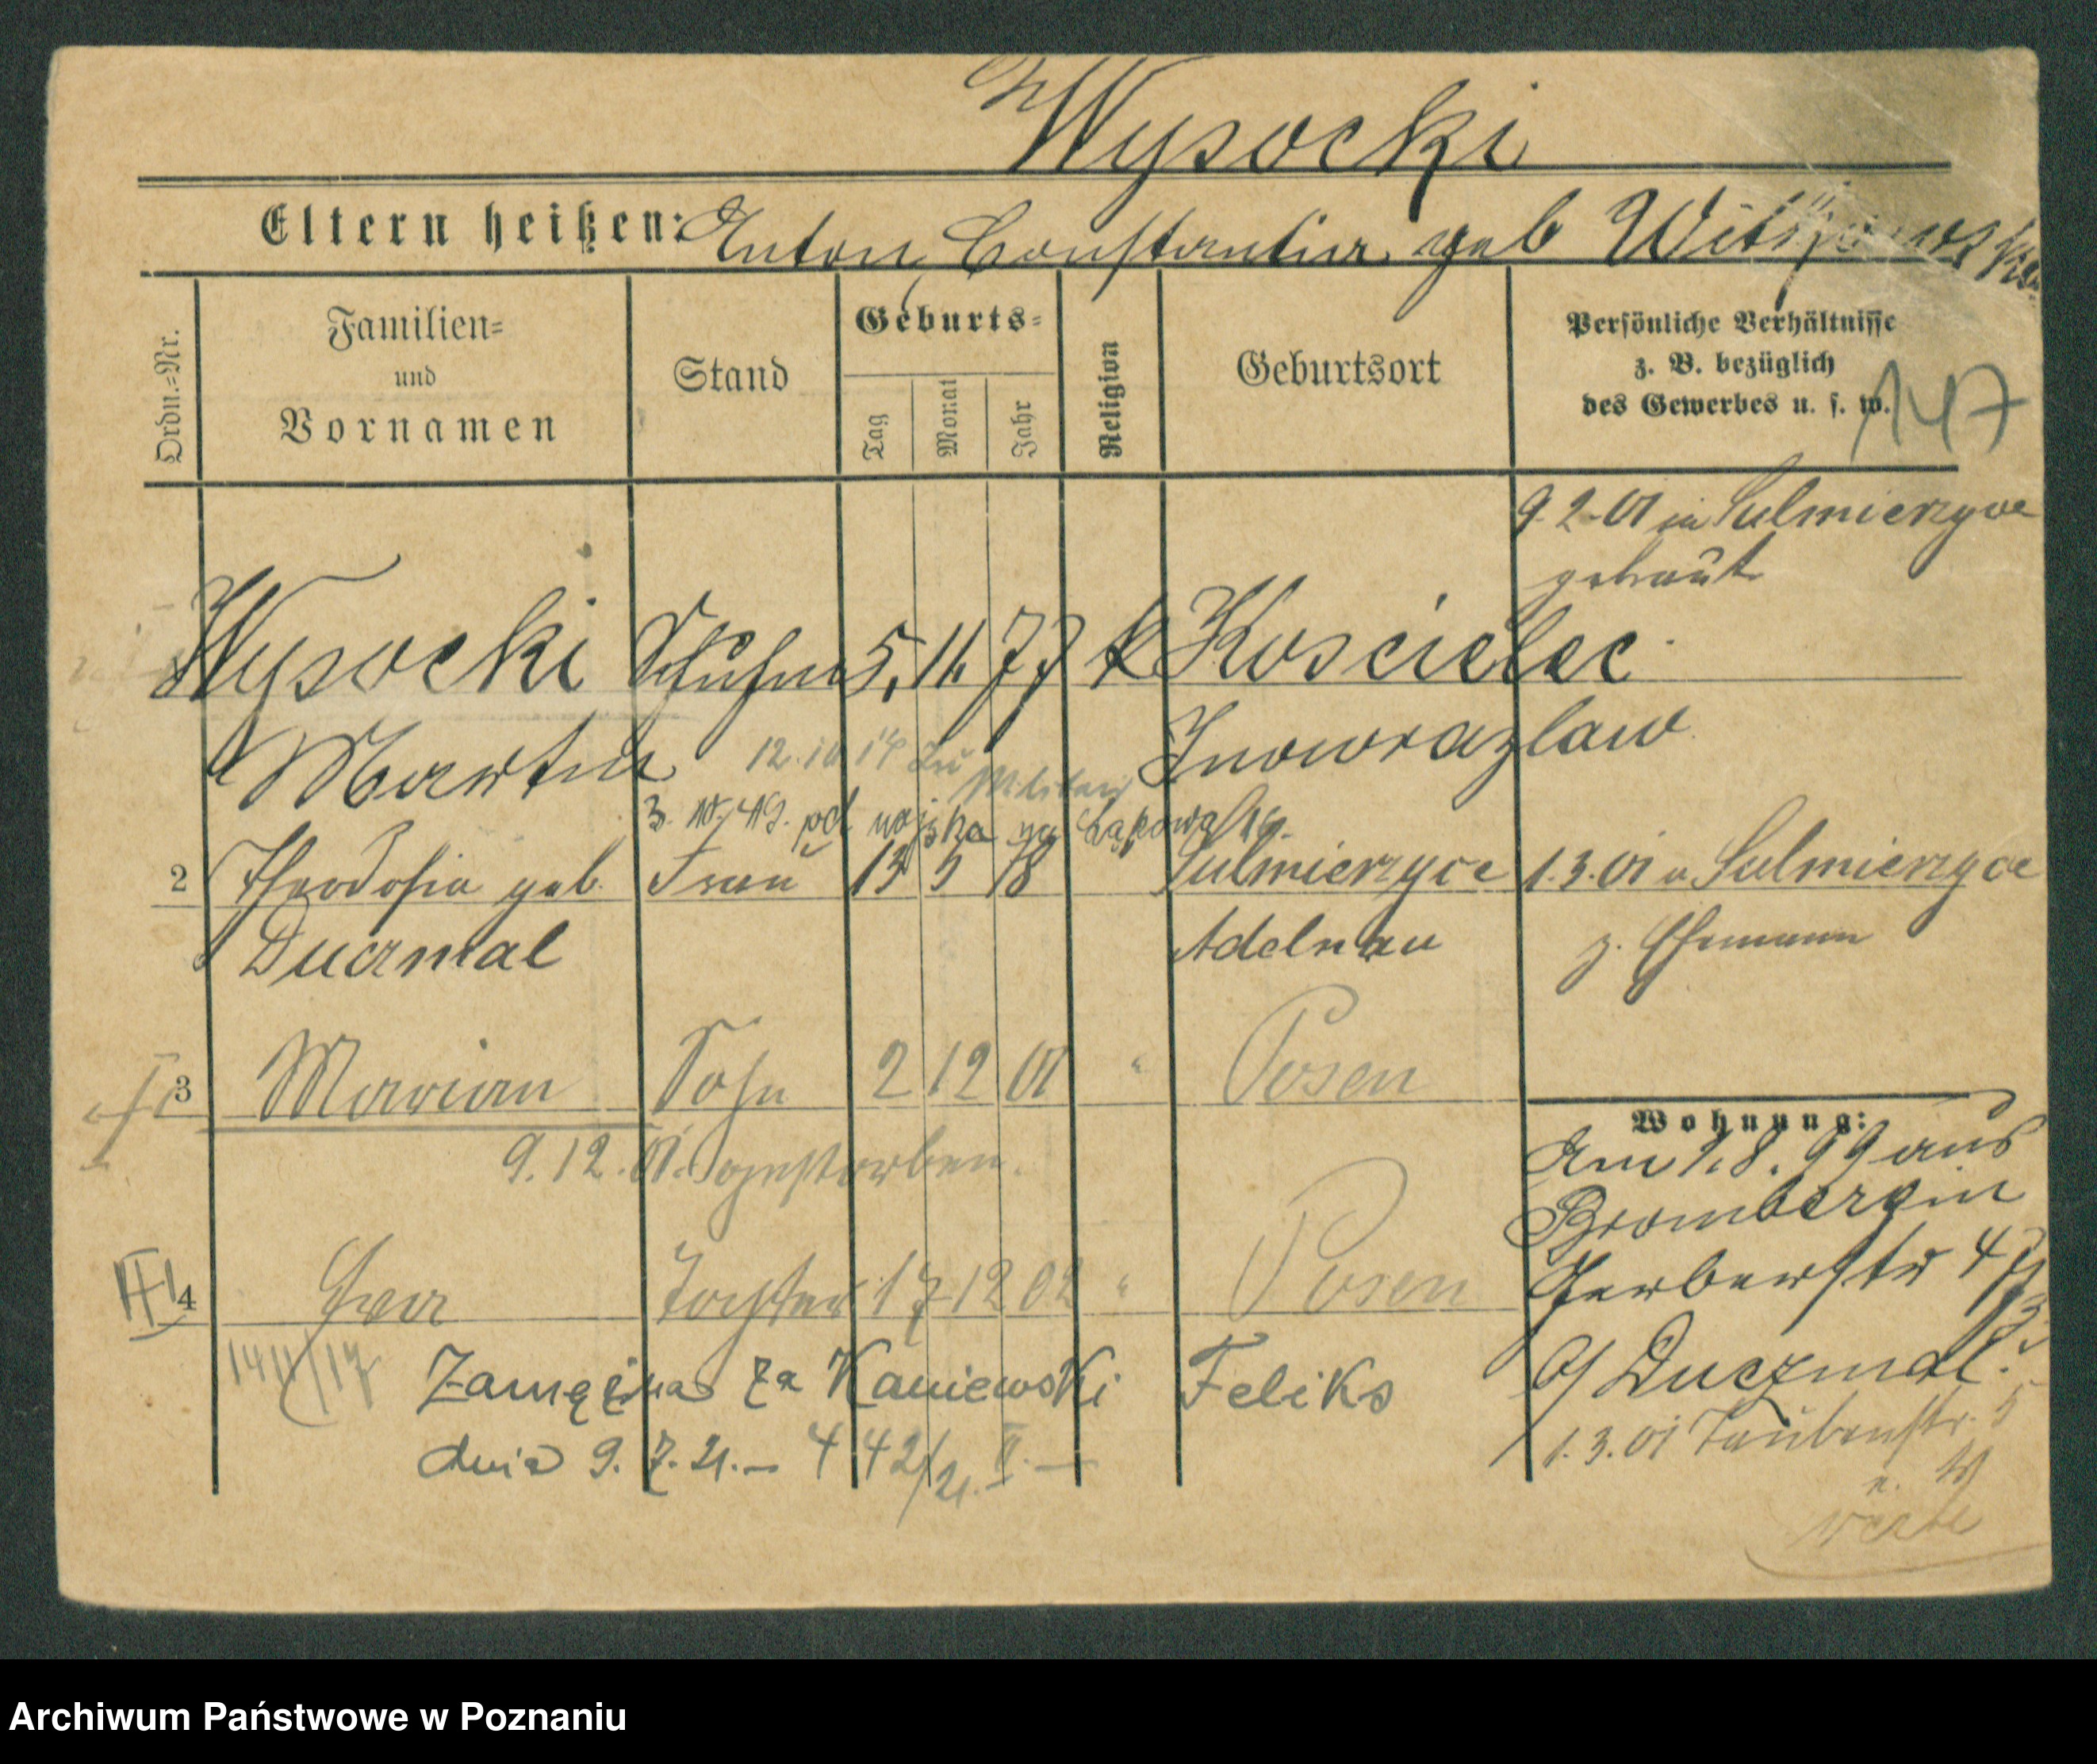 Wysocki
Eltern heißen: Anton, Constantia geb
Ordn.=Nr.
Familien=
und
Vornamen
Stand
Geburts=
Tag
Monat
Jahr
Religion
Geburtsort
Persönliche Verhältnisse
z. B. bezüglich
des Gewerbes u. s. w.
147
9.2.01 in Sulmierzyce
getraut
Wysocki 5. 11. 77 k Koscielec
Martin Inowrazlaw
12. 14 zu Militair
3. 49. od wojska
2 Theodosia geb. Frau 13 5 78 Sulmierzyce 1.3.01 v Sulmierzyce
Duczmal Adelnau z. Ehemann
3 Marian Sohn 2 12 01 " Posen
9.12.01. gestorben.
4 Eva Tochter 17 12 02 " Posen
Zamężna za Kaniewski Feliks
dnia 9. 7. 21. – 442/21. II. –
Wohnung:
Am 1.8.99 aus
Bromberg in
Gerberstr 47
b/ Duczmal.
1.3.01 Taubenstr. 5
Archiwum Państwowe w Poznaniu